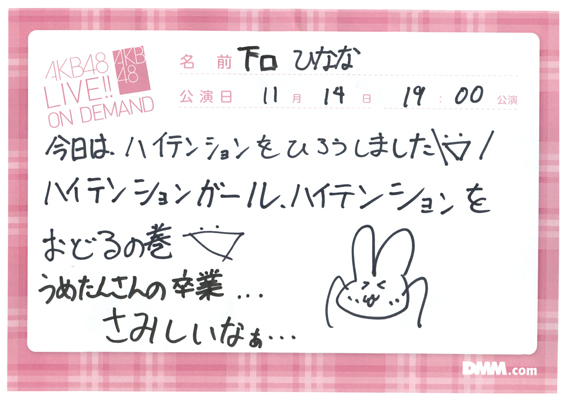 AKB48
LIVE!!
ON DEMAND
AKB
48
名前 下口 ひなな
公演日 11月14日 19:00公演
今日は、ハイテンションをひろうしました
ハイテンションガール、ハイテンションを
おどるの巻
うめたんさんの卒業...
さみしいなぁ...
DMM.com